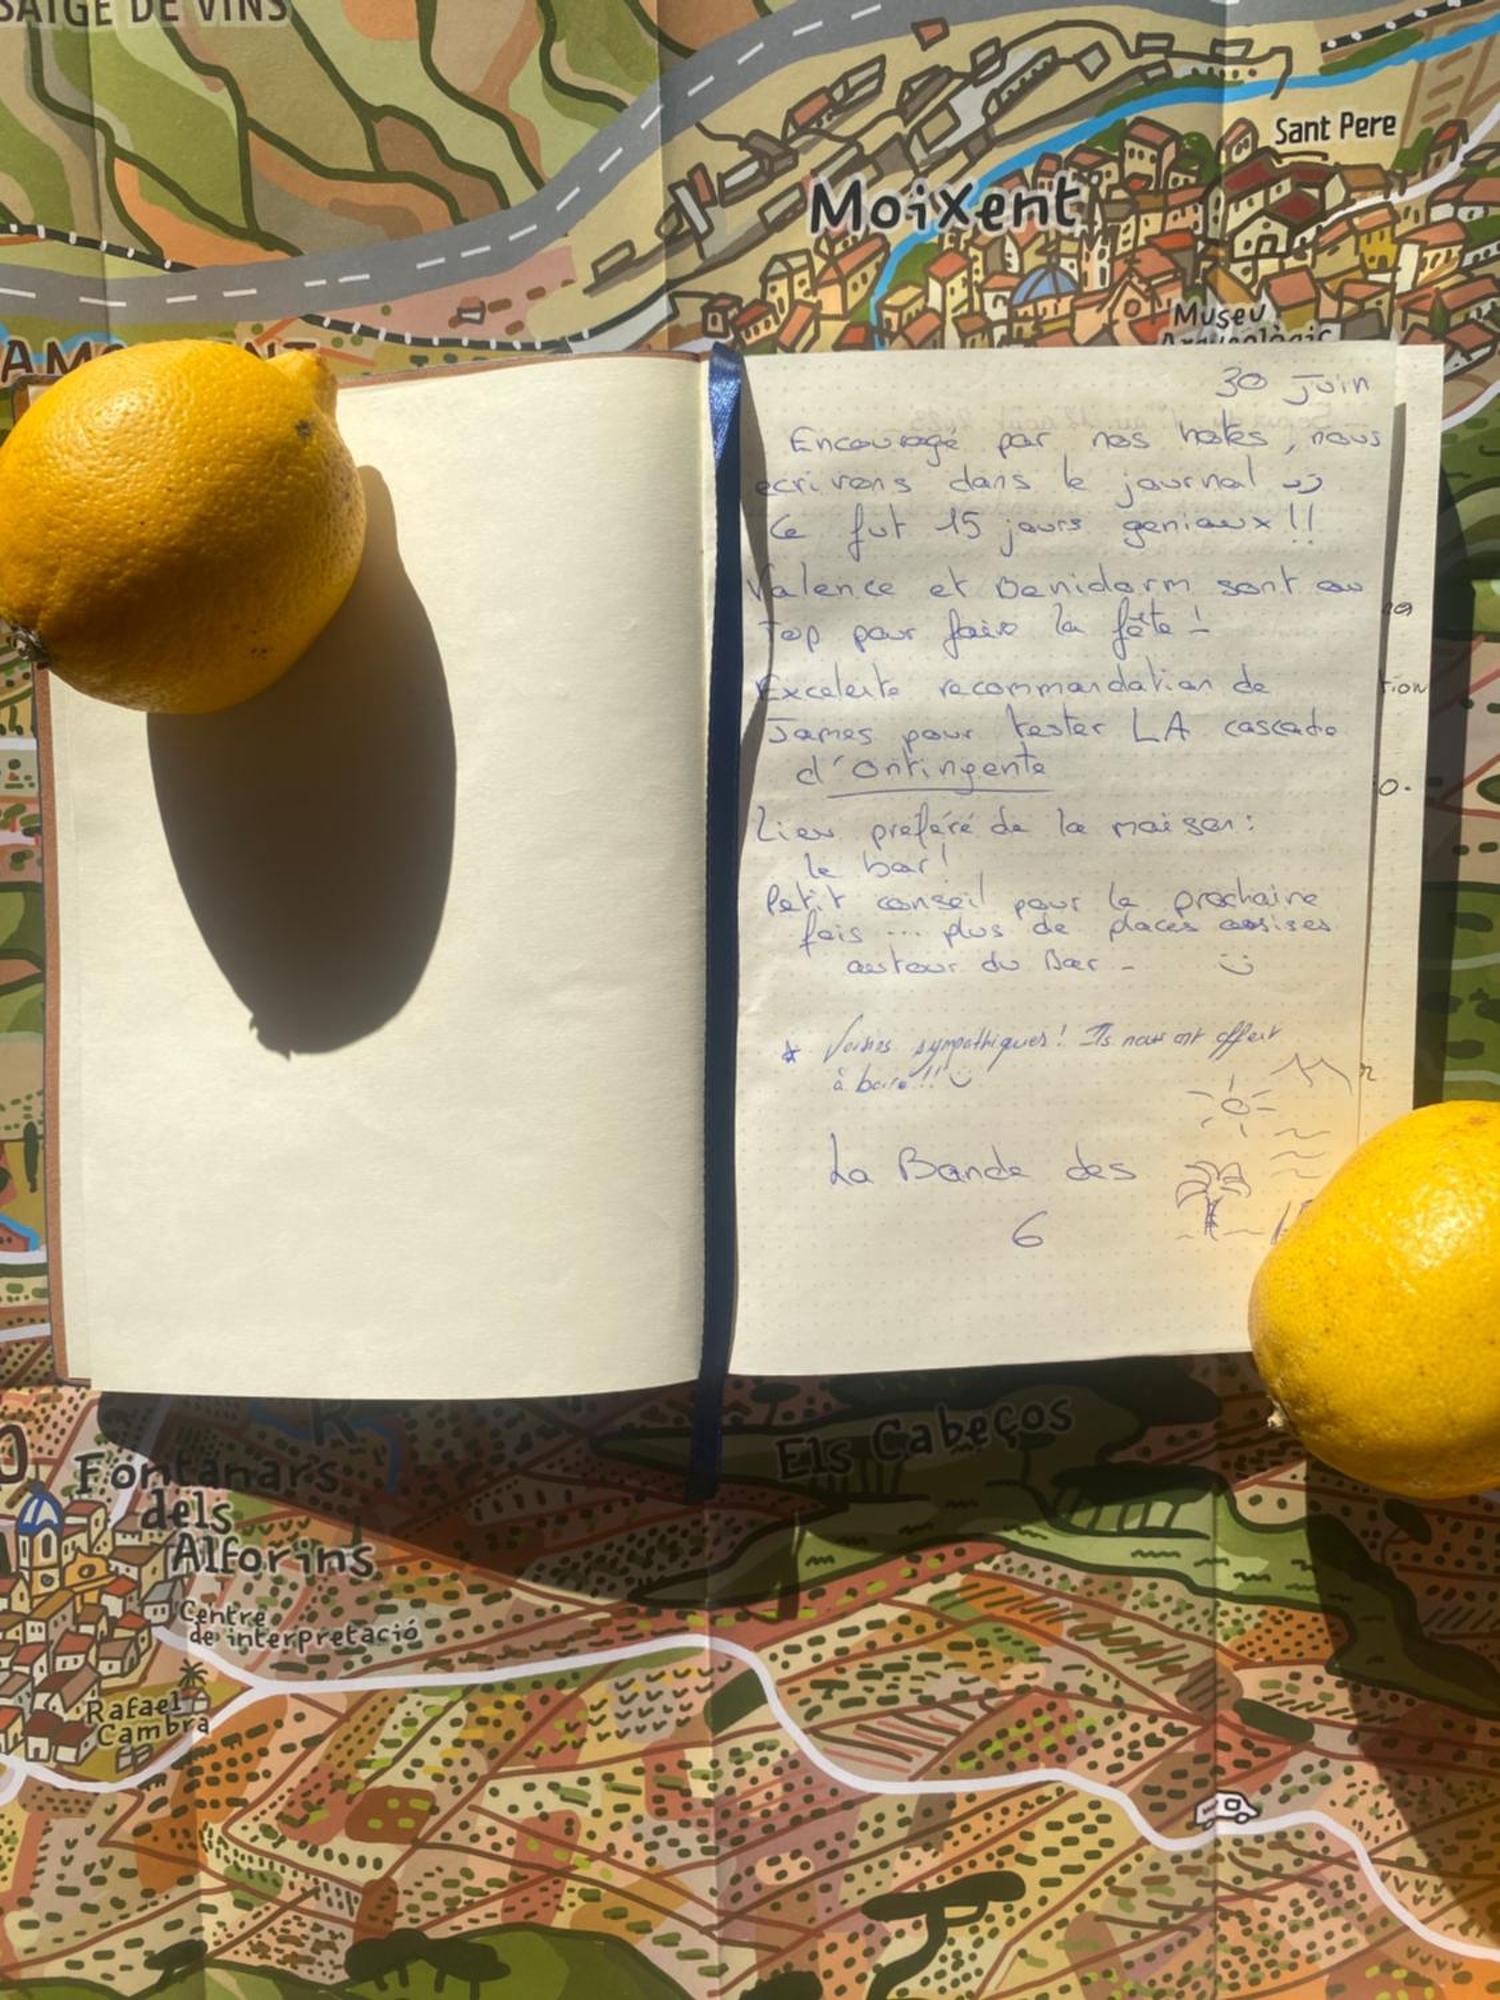 SATGE DE VINS
Sant Pere
Moixent
Museu
Arqueològic
30 Juin
Encouragé par nos hotes, nous
ecrivons dans le journal :)
Ce fut 15 jours geniaux !!
Valence et Benidorm sont au
Top pour faire la fête !
Excelente recommandation de
James pour tester LA cascade
d'Ontingente
Lieu preféré de la maison :
le bar !
Petit conseil pour la prochaine
fois ... plus de places assises
autour du Bar - :)
* Voisins sympathiques ! Ils nous ont offert
à boire !! :)
La Bande des
6
tion
o.
Els Cabeços
Fontanars
dels
Alforins
Centre
de interpretació
Rafael
Cambra